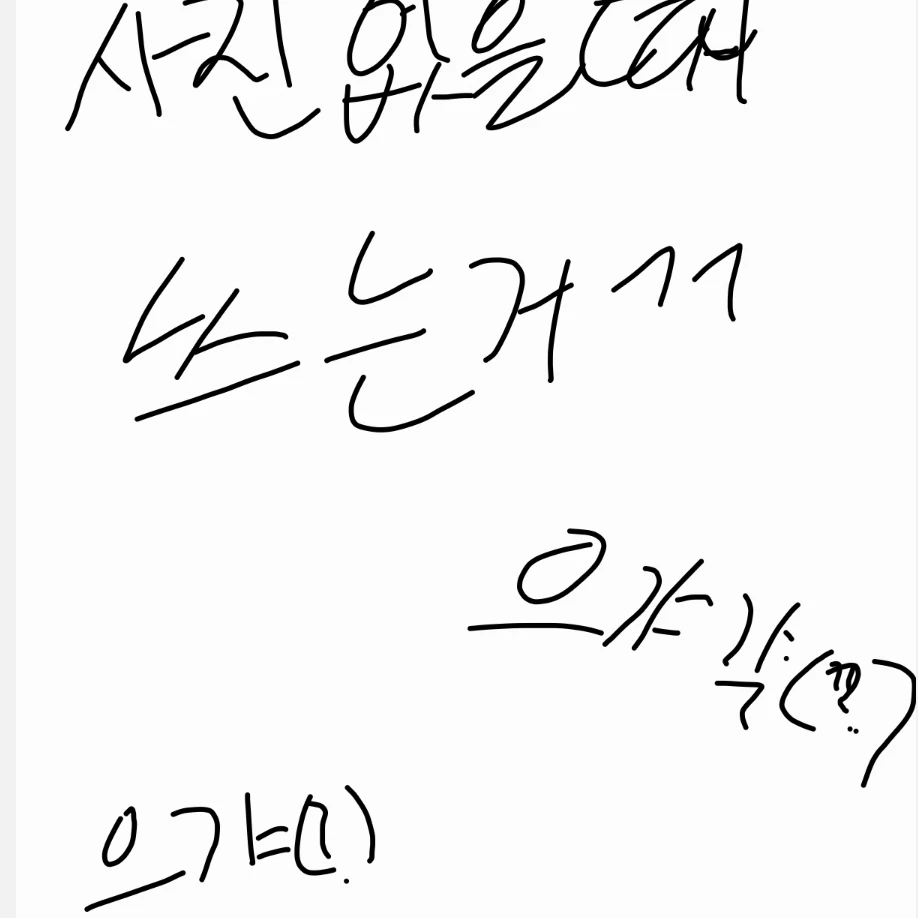 사진 없을때
쓰는거 ㄱㄱ
으갸각(??)
으갸(!)